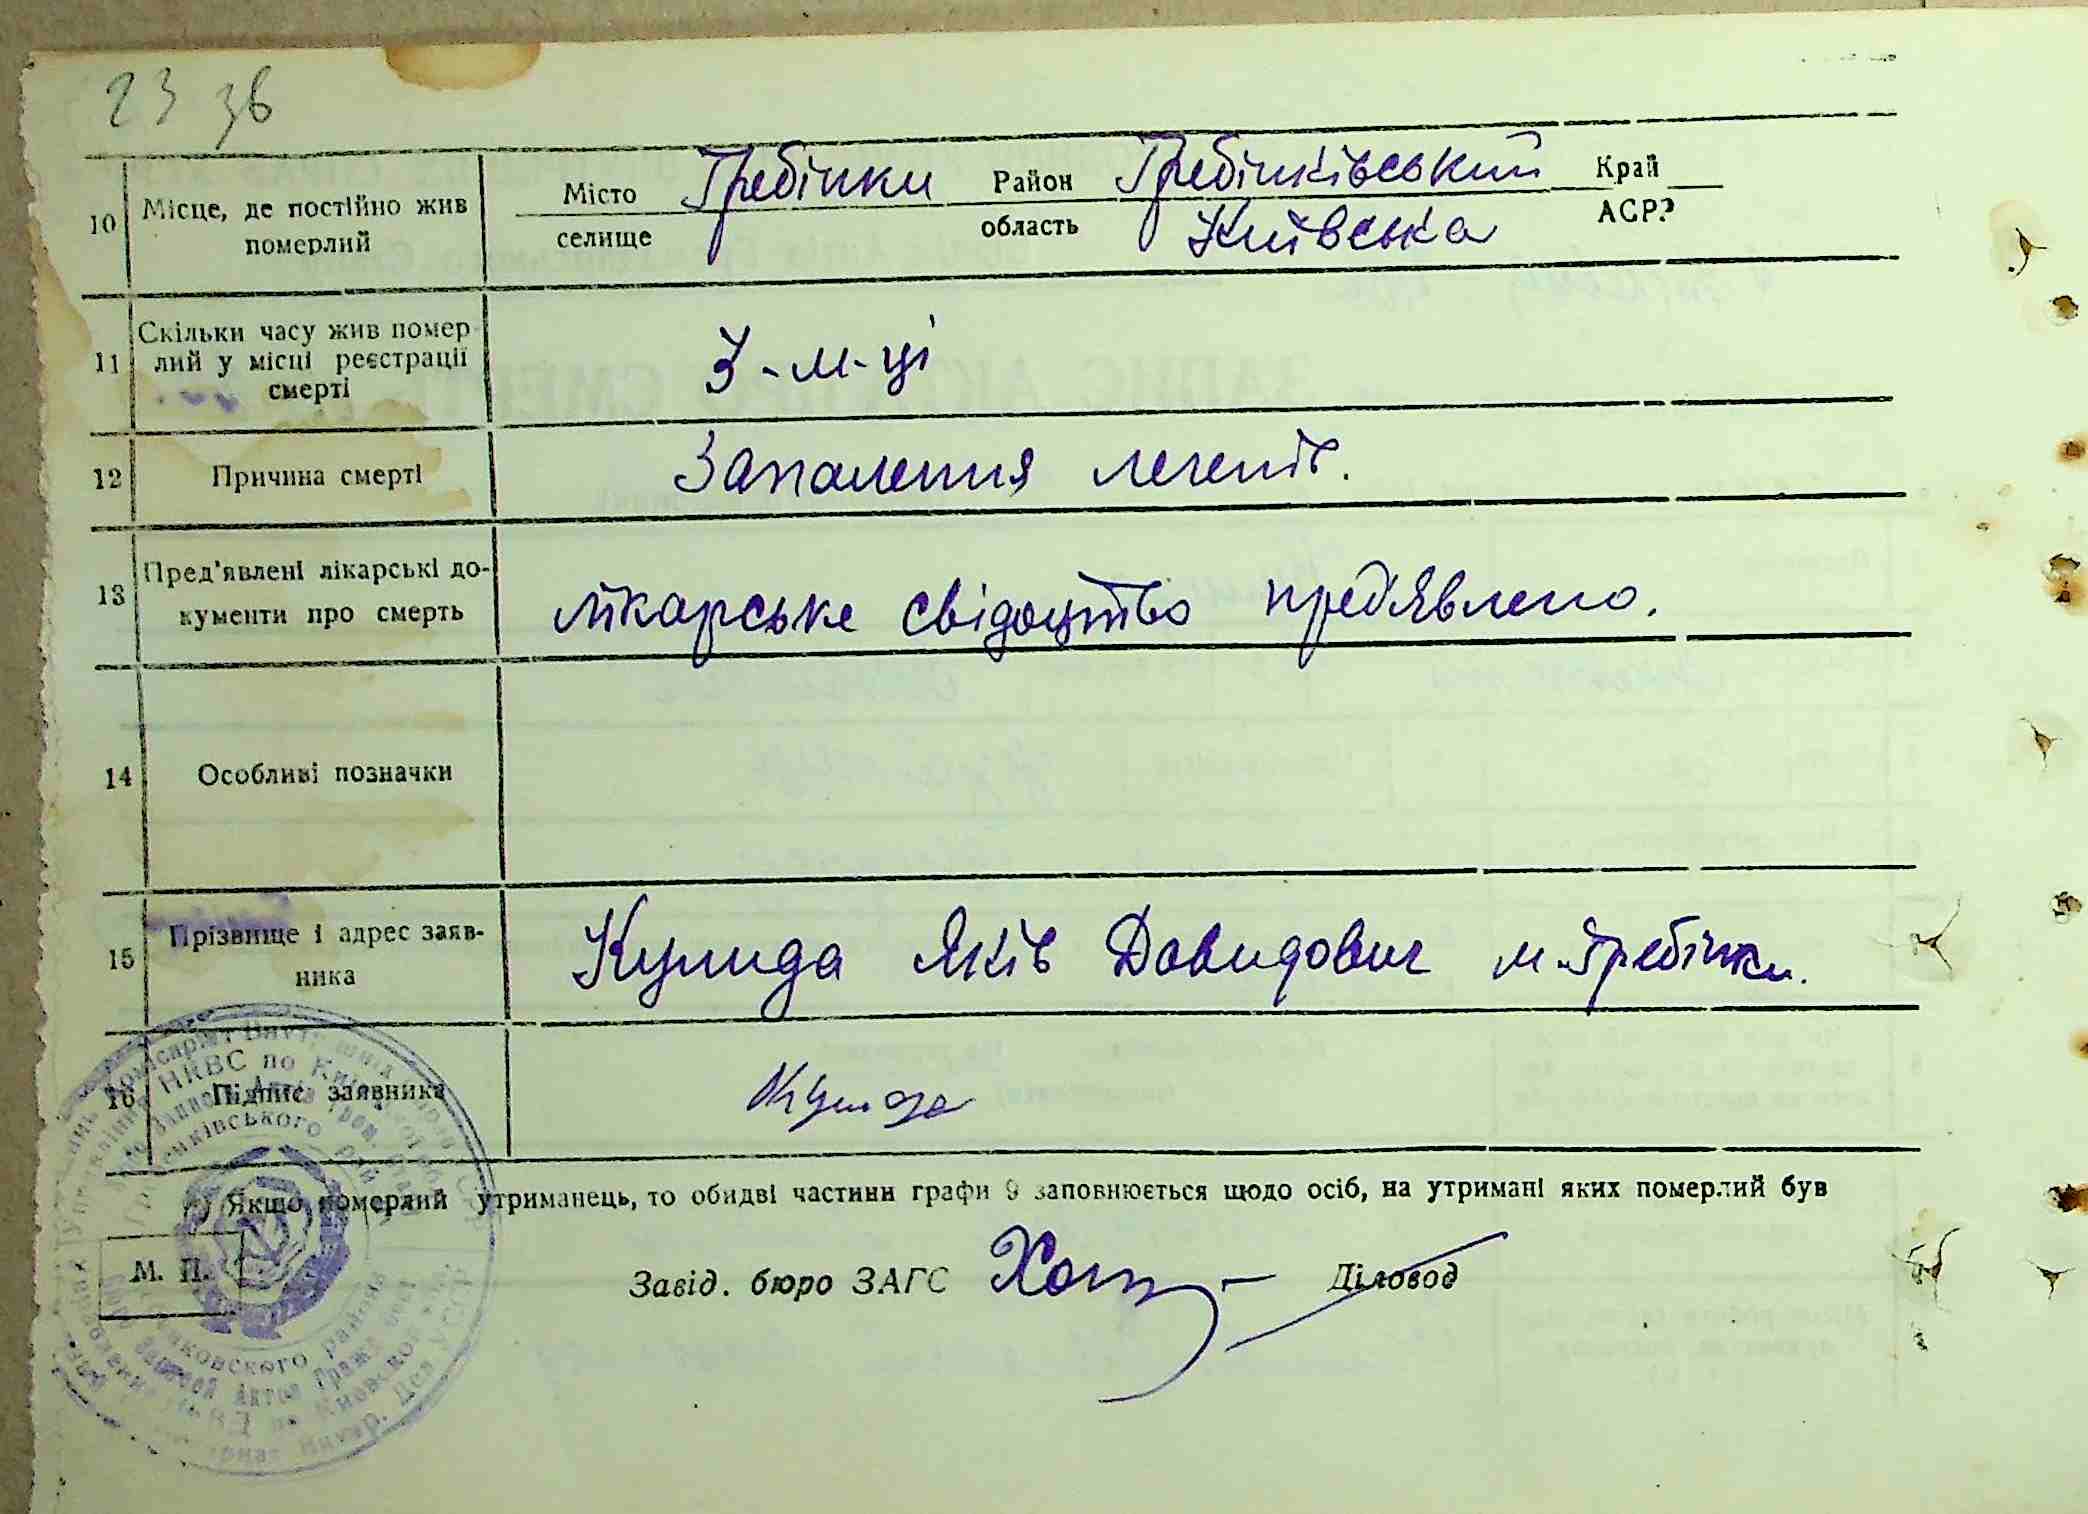 23 зв
10 Місце, де постійно жив померлий Місто селище Гребінки Район область Гребінківський Київська Край АСРР
11 Скільки часу жив помер-
лий у місці реєстрації
смерті
3-м-ці
12 Причина смерті Запалення легенів.
13 Пред'явлені лікарські до-
кументи про смерть
лікарське свідоцтво пред'явлено.
14 Особливі позначки
15 Прізвище і адрес заяв-
ника
Кулида Яків Давидович м. Гребінки.
16 Підпис заявника
*) Якщо померлий утриманець, то обидві частини графи 9 заповнюється щодо осіб, на утримані яких померлий був
М. П.
Завід. бюро ЗАГС Діловод